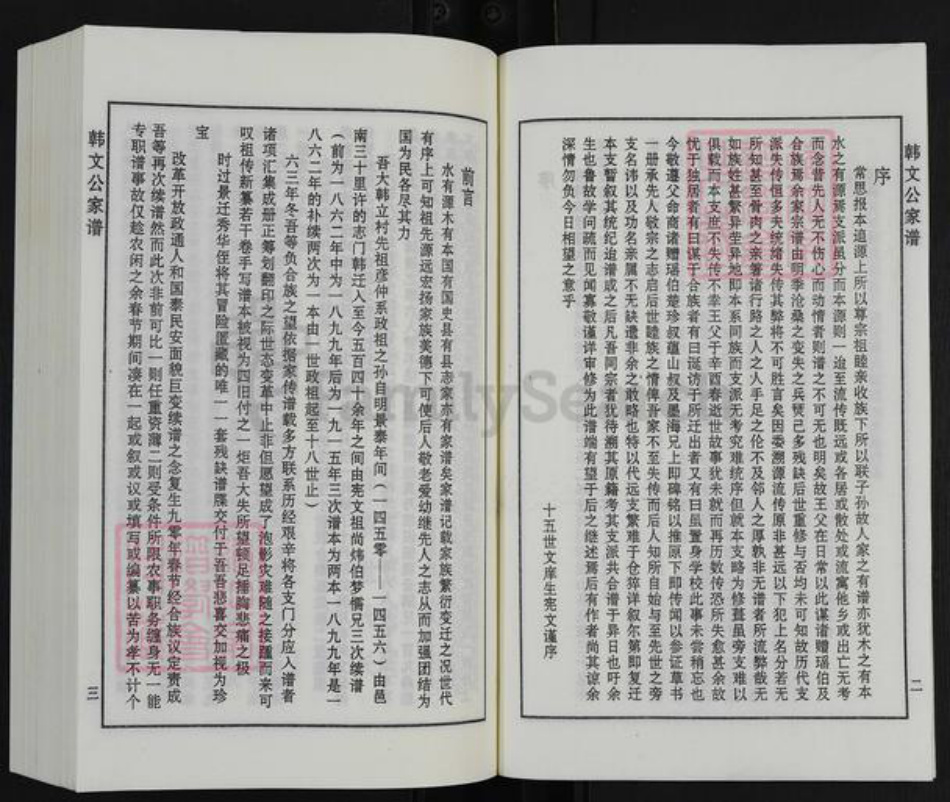 韩文公家谱
序
常思报本追源上所以尊宗祖睦亲收族下所以联子孙故人家之有谱亦犹木之有本
水之有源焉支派虽分而本源则一迨至流传既远或各居或散处或流寓他乡或出亡无考
而念昔先人无不伤心而动情者则谱之不可无也明矣故王父在日常以此谋诸赠瑶伯及
合族焉余家宗谱由明季沧桑之变失之兵燹已多残缺后世重修与否均未可知故历代支
派失传恒多夫统绪失传其弊将不可胜言矣因委溯源流传原非甚远以下犯上名分若无
所知甚至骨肉之亲等诸行路之人之人手足之伦不及邻人之厚孰非无谱者所流弊哉无
如族姓甚繁异茔异地即本系同族而支派无考究难统序但就本支略为修葺虽旁支难以
俱载而本支庶不失传不幸王父于辛酉春逝世故事犹未就而再历数传恐所失愈甚余故
忧于独居者有曰谋于合族者有曰诞访于所迁出者又有曰虽置身学校此事未尝稍忘也
今敬遵父命商诸赠瑶伯楚珍叔蕴山叔及墨海兄上即碑铭以推原下即传闻以参证草书
一册承先人敬宗之志启后世睦族之情俾吾家不至失传而后人知所自始与至先世之旁
支名讳以及功名亲属不无缺遗非余之敢略也特以代远支繁难于仓猝详叙尔第即复迁
本支暂叙其统纪迨谱成之后凡吾同宗者犹待溯其原籍考其支派共合谱于异日也吁余
生也鲁故学问疏而见闻寡敬谨详审修为此谱端有望于后之继述焉后有作者尚其谅余
深情勿负今日相望之意乎
十五世文庠生宪文谨序
二
前言
水有源木有本国有国史县有县志家亦有家谱矣家谱记载家族繁衍变迁之况世代
有序上可知祖先源远宏扬家族美德下可使后人敬老爱幼继先人之志从而加强团结为
国为民各尽其力
吾大韩立村先祖彦仲系政祖之孙自明景泰年间（一四五零——一四五六）由邑
南三十里许的志门韩迁入至今五百四十余年之间由宪文祖尚炜伯梦儒兄三次续谱
（前为一八六二年中为一八九九年后为一九一五年三次谱本为两本一八九九年是一
八六二年的补续两次为一本由一世政祖起至十八世止）
六三年冬吾等负合族之望依据家传谱载多方联系历经艰辛将各支门分应入谱者
诸项汇集成册正筹划翻印之际世态变革中止非但愿望成了泡影灾难随之接踵而来可
叹祖传新纂若干卷手写谱本被视为四旧付之一炬吾大失所望顿足捶胸悲痛之极
时过景迁秀华侄将其冒险匿藏的唯一一套残缺谱牒交付于吾吾悲喜交加视为珍
宝
改革开放政通人和国泰民安面貌巨变续谱之念复生九零年春节经合族议定责成
吾等再次续谱然而此次非前可比一则任重资薄二则受条件所限农事职务缠身无一能
专职谱事故仅趁农闲之余春节期间凑在一起或叙或议或填写或编纂以苦为孝不计个
韩文公家谱
三